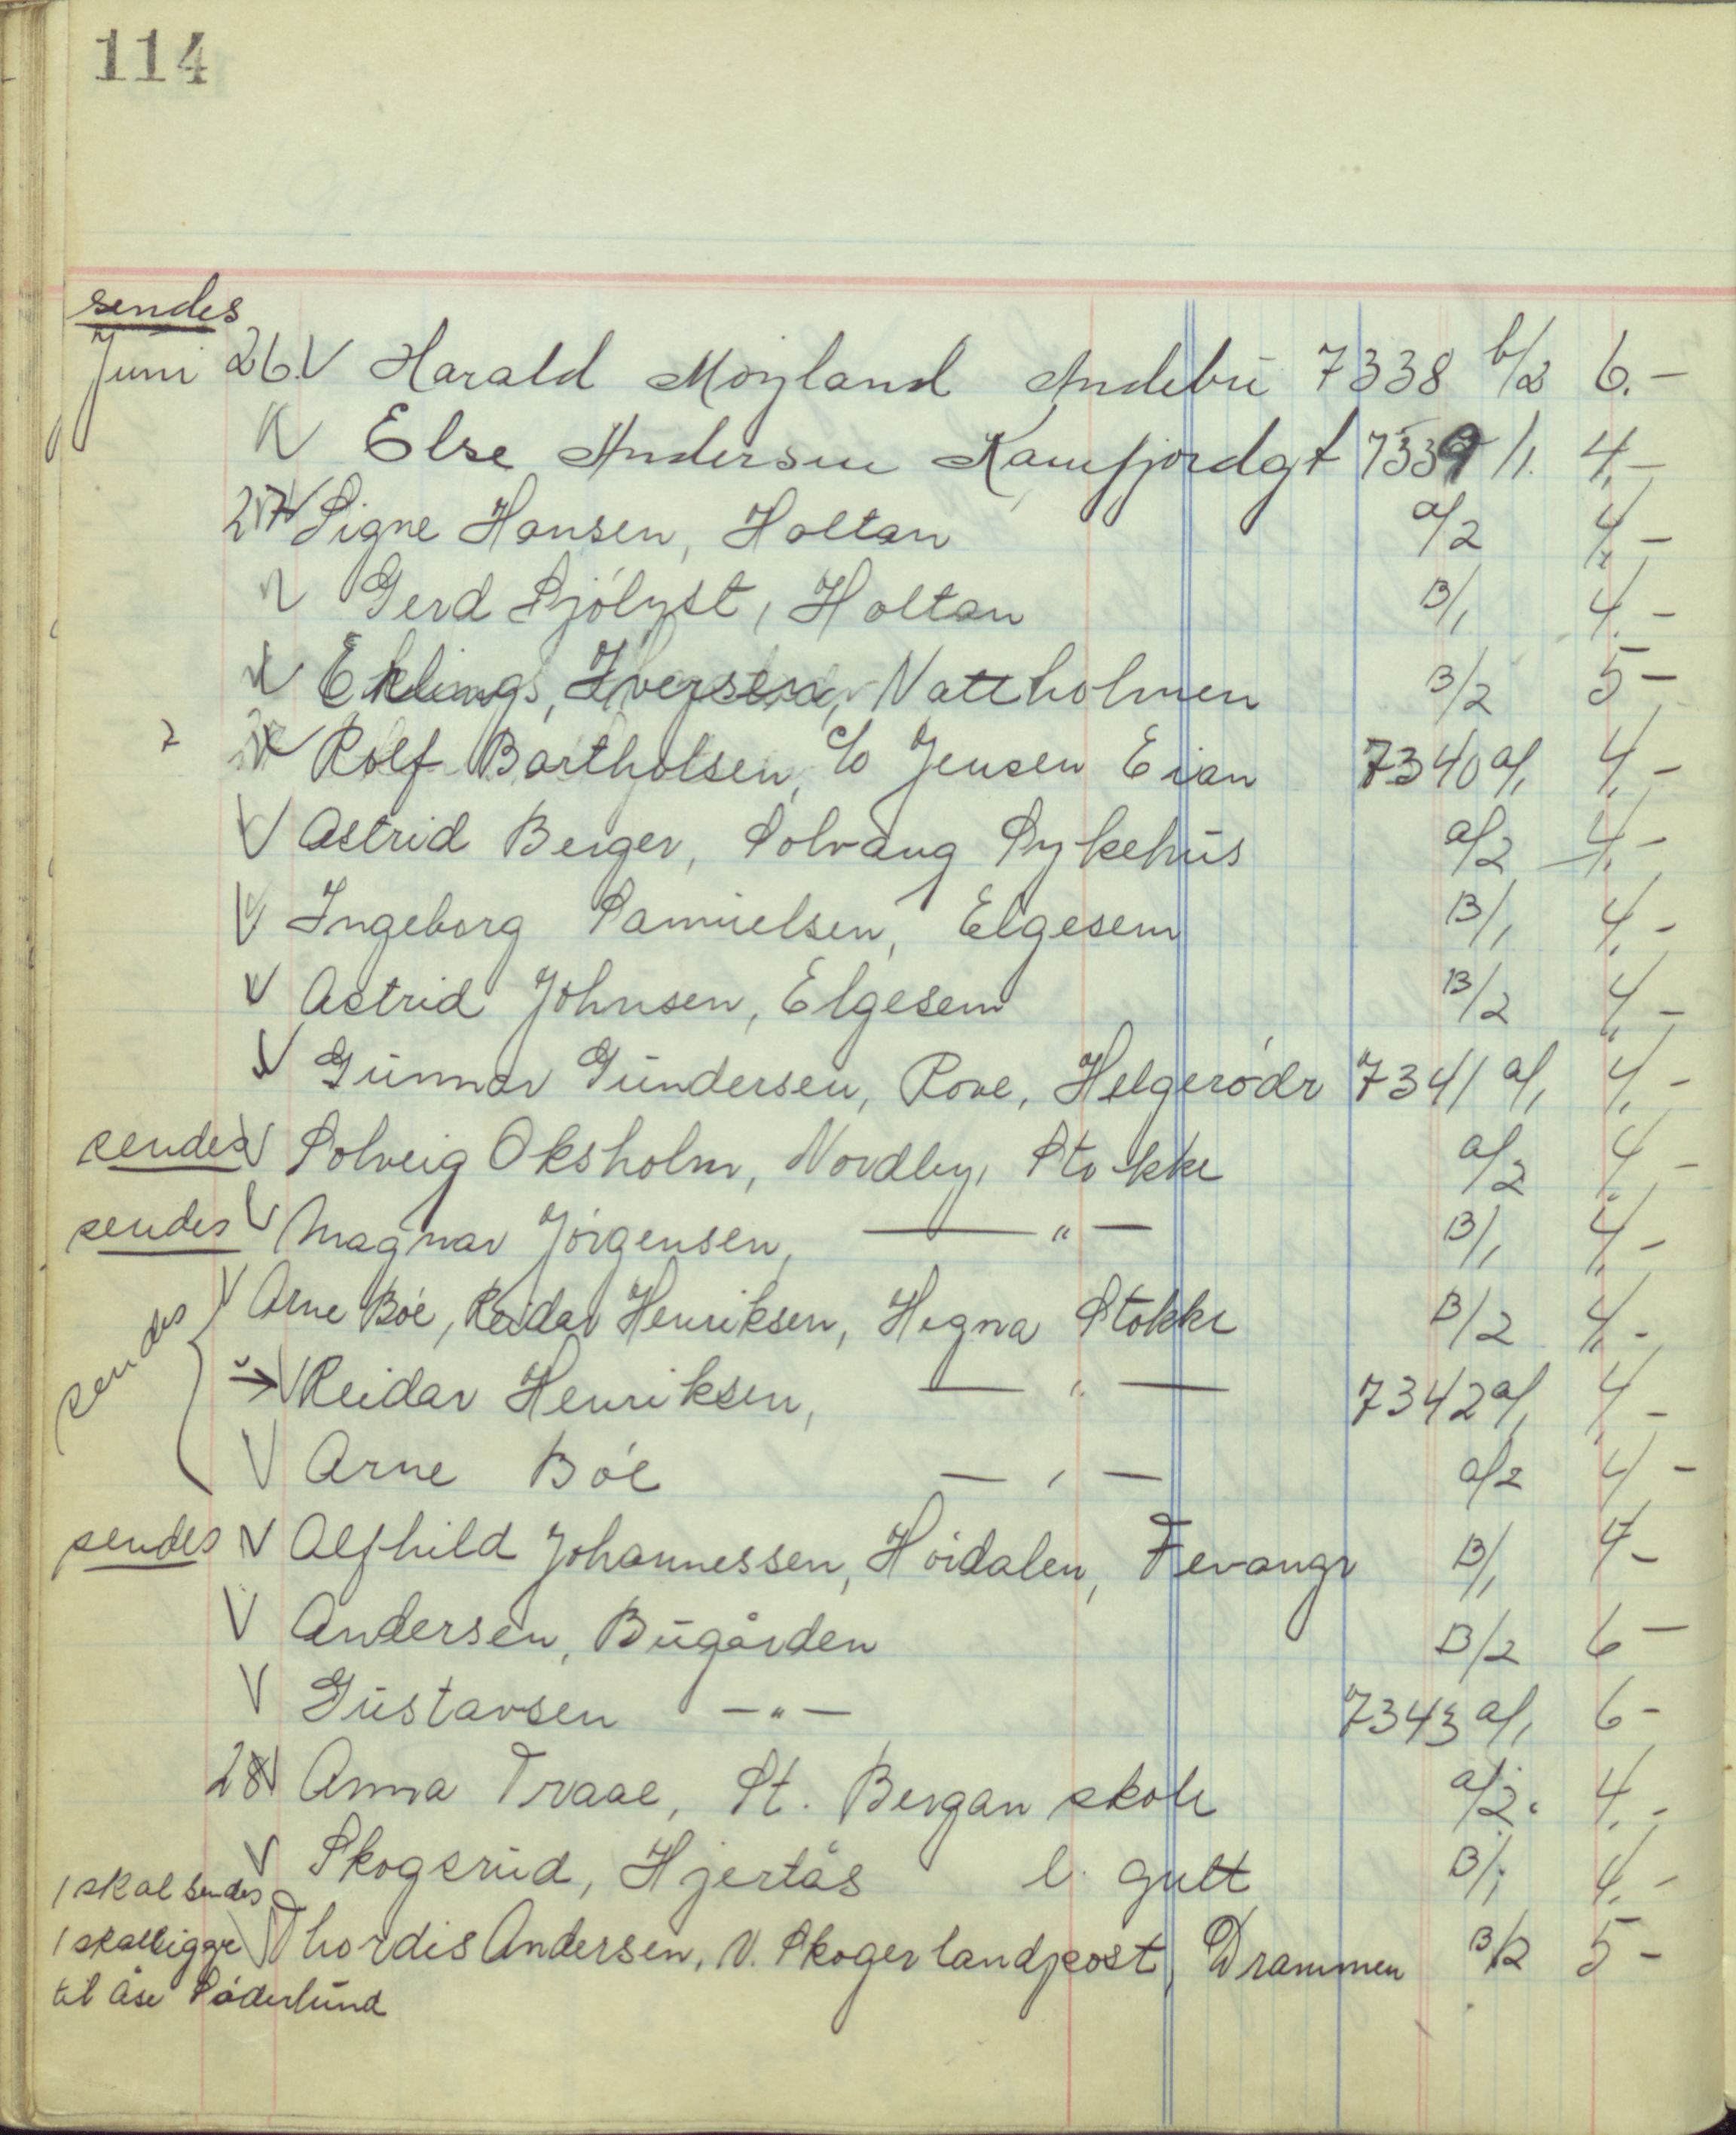 114
sendes
Juni 26. V Harald Moyland Andebu 7338 b/2 6.-
V Else Andersen Kamfjordgt 7339 /1. 4,-
27 V Signe Hansen, Holtan a/2 4,-
V Gerd Sjólyst, Holtan B/1 4.-
V Eklings, Iversen, Nattholmen B/2 5-
V Rolf Bartholsen, c/o Jensen Eian 7340 a/1 4,-
V Astrid Berger, Solvang Sykehus a/2 4,-
V Ingeborg Samuelsen, Elgesem B/1 4,-
V Astrid Johnsen, Elgesem B/2 4,-
V Gunnar Gundersen, Rove, Helgerödr 7341 a/1 4,-
sendes V Solveig Oksholm, Nordby, Stokke a/2 4-
sendes V Magnar Jörgensen, — " — B/1 4,-
sendes V Arne Böe, Reidar Henriksen, Hegna Stokke B/2 4,-
→ V Reidar Henriksen, — " — 7342 a/1 4,-
V Arne Böe — " — a/2 4-
sendes V Alfhild Johannessen, Höidalen, Fevangr B/1 4-
V Andersen, Bugården B/2 6-
V Gustavsen -"- 7343 a/1 6-
28 V Anna Traae, St. Bergan skole a/2. 4.-
V Skogsrud, Hjertås l. gutt B/1 4.-
1 skal sendes
1 skal ligge V Thordis Andersen, N. Skoger landpost, Drammen B/2 5-
til Åse Söderlund